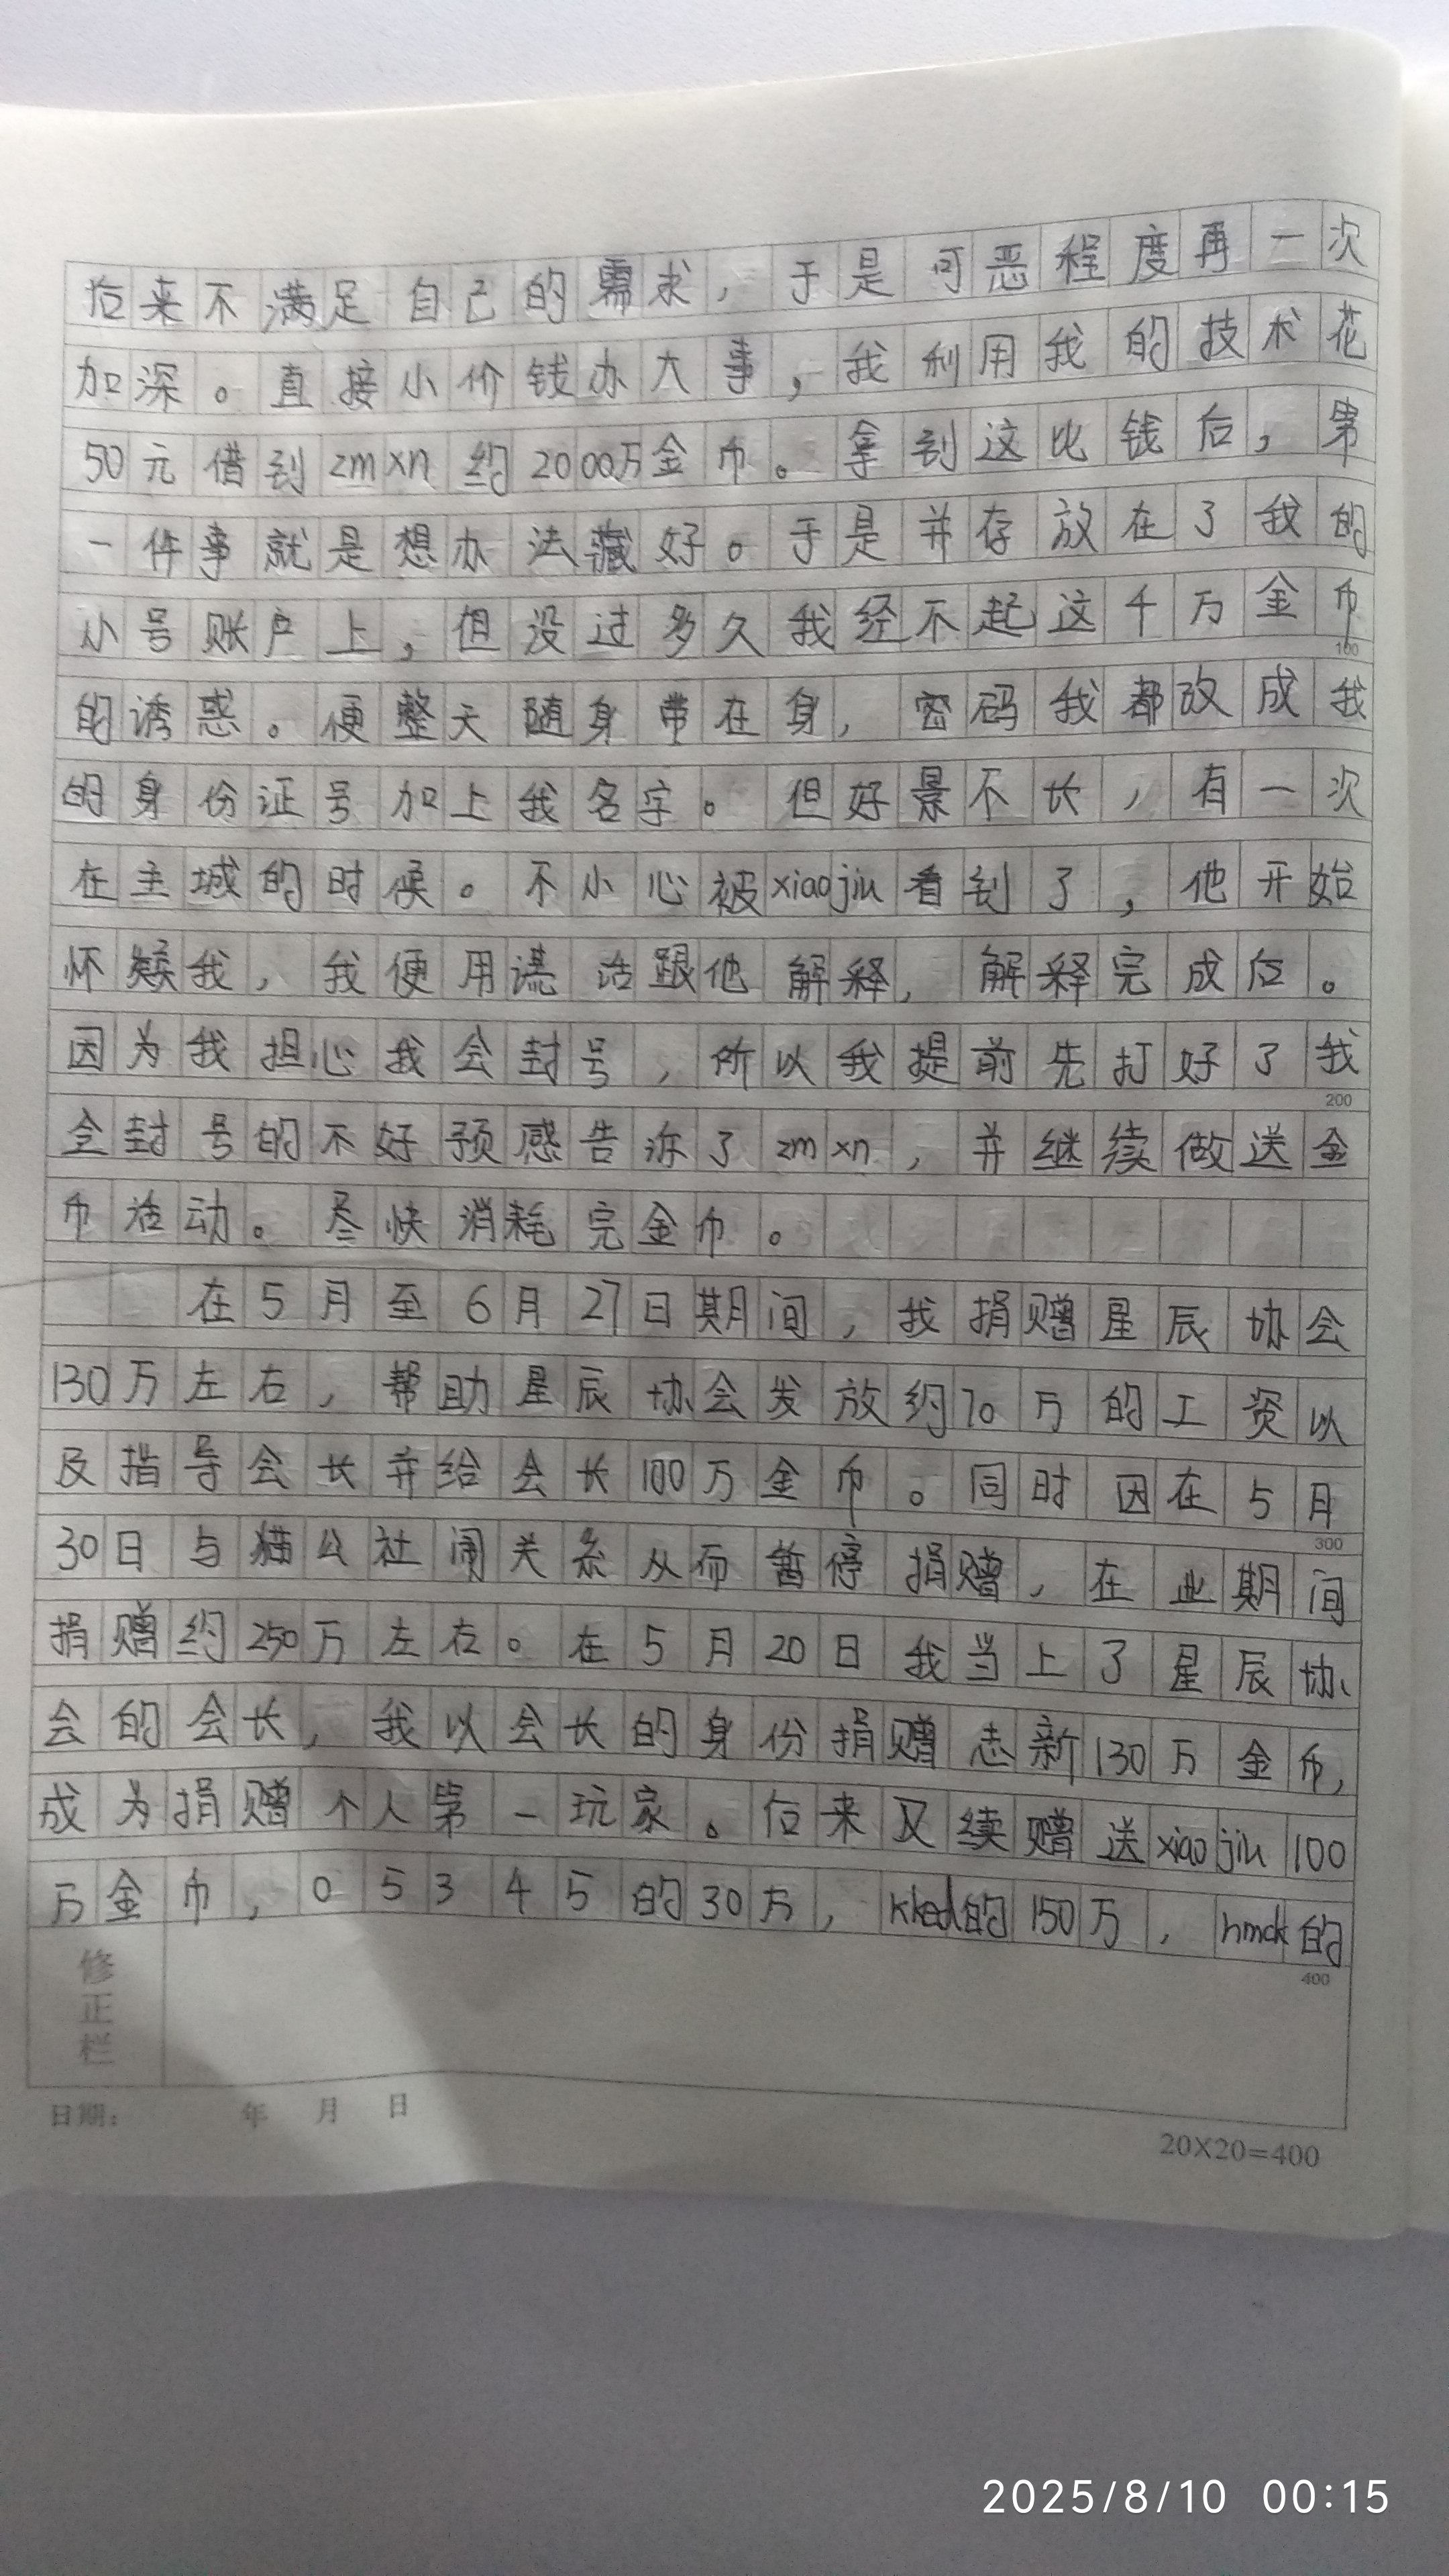 后来不满足自己的需求，于是可恶程度再一次
加深。直接小价钱办大事，我利用我的技术花
50元借到zmxn约2000万金币。拿到这比钱后，第
一件事就是想办法藏好。于是并存放在了我的
小号账户上，但没过多久我经不起这千万金币
100
的诱惑。便整天随身带在身，密码我都改成我
的身份证号加上我名字。但好景不长，有一次
在主城的时候。不小心被xiaojiu看到了，他开始
怀疑我，我便用谎话跟他解释，解释完成后。
因为我担心我会封号，所以我提前先打好了我
200
会封号的不好预感告诉了zmxn，并继续做送金
币活动。尽快消耗完金币。
在5月至6月27日期间，我捐赠星辰协会
130万左右，帮助星辰协会发放约70万的工资以
及指导会长并给会长100万金币。同时因在5月
300
30日与猫公社闹关系从而暂停捐赠，在此期间
捐赠约250万左右。在5月20日我当上了星辰协
会的会长，我以会长的身份捐赠志新130万金币，
成为捐赠个人第一玩家。后来又续赠送xiaojiu100
万金币，05345的30万，kked的150万，hmck的
400
修正栏
日期： 年 月 日
20X20=400
2025/8/10 00:15